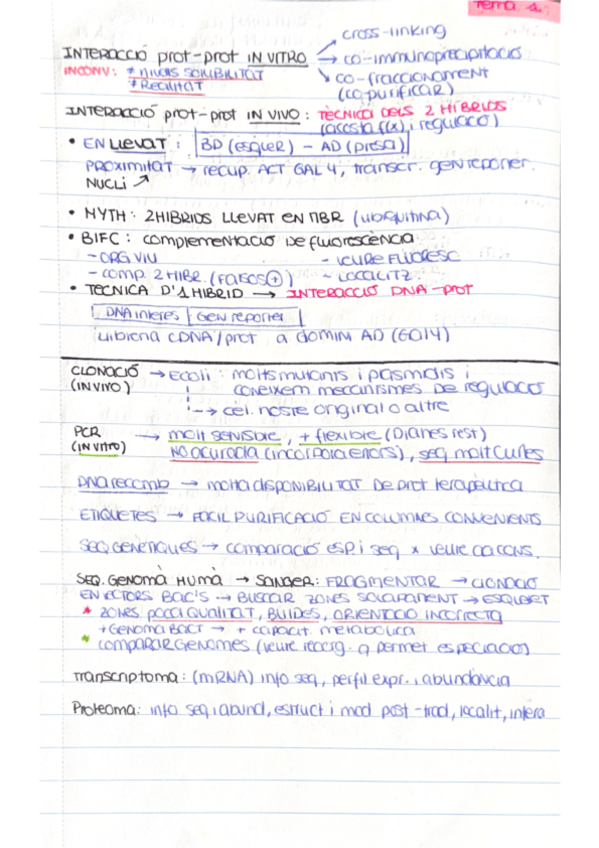 Tema 1
cross-linking
INTERACCIÓ prot-prot IN VITRO → co-immunoprecipitació
INCONV: * nivells SOLUBILITAT
* Realitat
co-fraccionament
(copurificar)
INTERACCIÓ prot-prot IN VIVO: TÈCNICA DELS 2 HÍBRIDS
(acosta f(x) i regulació)
• EN LLEVAT: BD (esquer) - AD (presa)
PROXIMITAT → recup. ACT GAL4, transcr. gen reporter.
NUCLI ↗
• MYTH: 2HIBRIDS LLEVAT EN MBR (ubiquitina)
• BIFC: complementació de fluorescència
- ORG VIU - veure FLUORESC
- comp. 2 HIBR. (FALSOS ⊕) - LOCALITZ.
• TÈCNICA D'1 HIBRID → INTERACCIÓ DNA-prot
DNA interes | Gen reporter
cDNA/prot a domini AD
CLONACIÓ → E coli: molts mutants i plasmidis i
(IN VIVO) coneixem mecanismes de regulació
--> cel. hoste original o altre
PCR → molt sensible, + flexible (Dianes rest)
(in vitro) NO acuracia (incorpora errors), seq molt curtes
DNA recomb → molta disponibilitat de prot terapèutica
ETIQUETES → FÀCIL PURIFICACIÓ EN COLUMNES CONVENIENTS
SEQ GENÈTIQUES → comparació esp i seq x veure
SEQ. GENOMA HUMÀ → SANGER: FRAGMENTAR → CLONACIÓ
EN VECTORS BAC's → BUSCAR ZONES SOLAPAMENT →
* ZONES poca QUALITAT, BUIDES, ORIENTACIÓ INCORRECTA
+ GENOMA BACT → + capacit. metabòlica
* COMPARAR GENOMES (veure reorg. q permet especiació)
Transcriptoma: (mRNA) info seq, perfil expr. i abundància
Proteoma: info seq i abund, estruct i mod post-trad, localit, intera